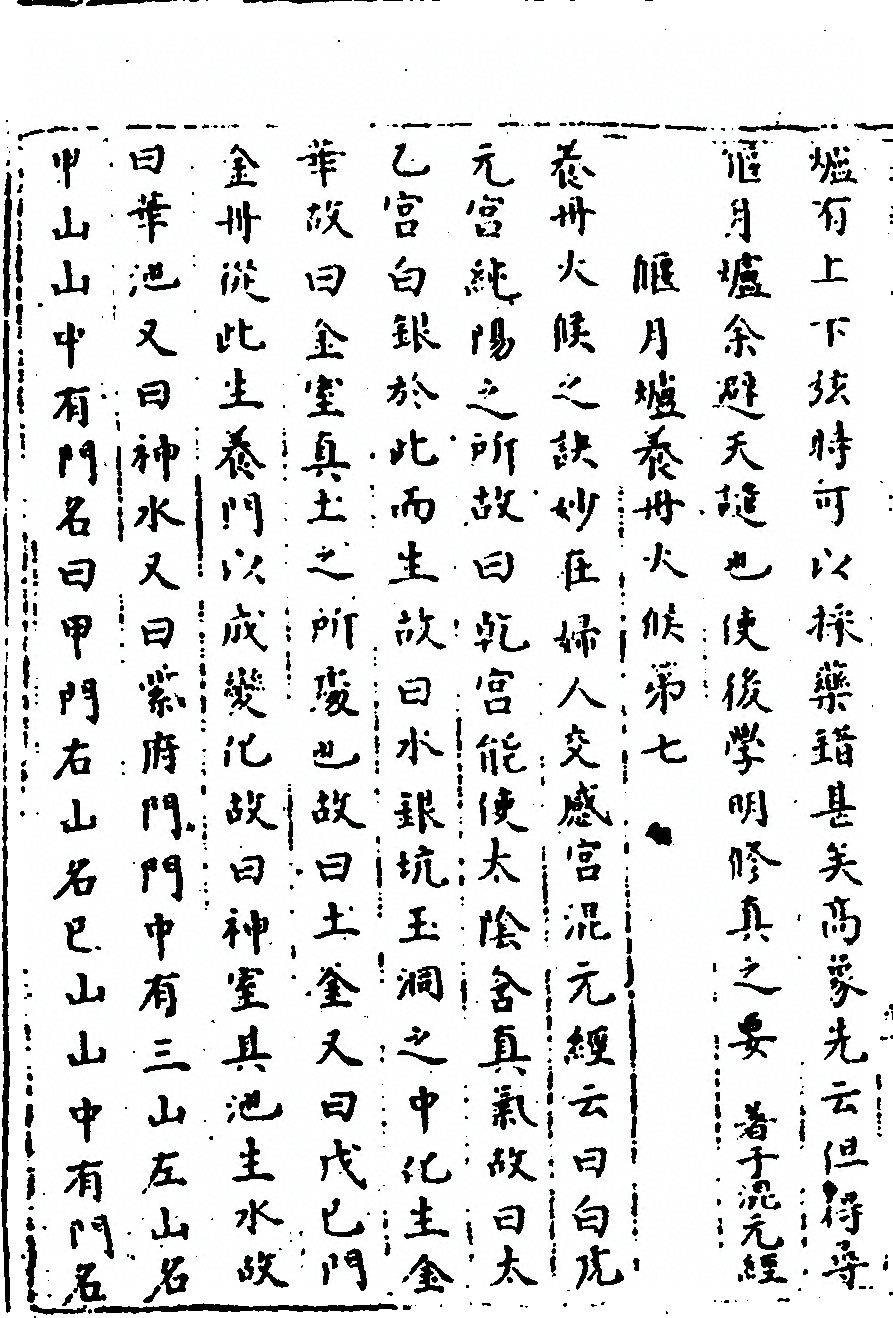 爐有上下弦時可以採藥錯甚矣高象先云但得尋
偃月爐余避天譴也使後學明修真之要 着于混元經
偃月爐養丹火候第七
養丹火候之訣妙在婦人交感宮混元經云曰白虎
元宮純陽之所故曰乾宮能使太陰含真氣故曰太
乙宮白銀於此而生故曰水銀坑玉洞之中化生金
華故曰金室真土之所處也故曰土釜又曰戊己門
金丹從此生養門以成變化故曰神室其池生水故
曰華池又曰神水又曰紫府門門中有三山左山名
甲山山中有門名曰甲門右山名巳山山中有門名